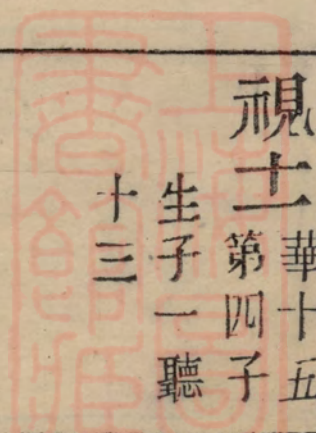 視十一
華十五
第四子
生子一聽
十三